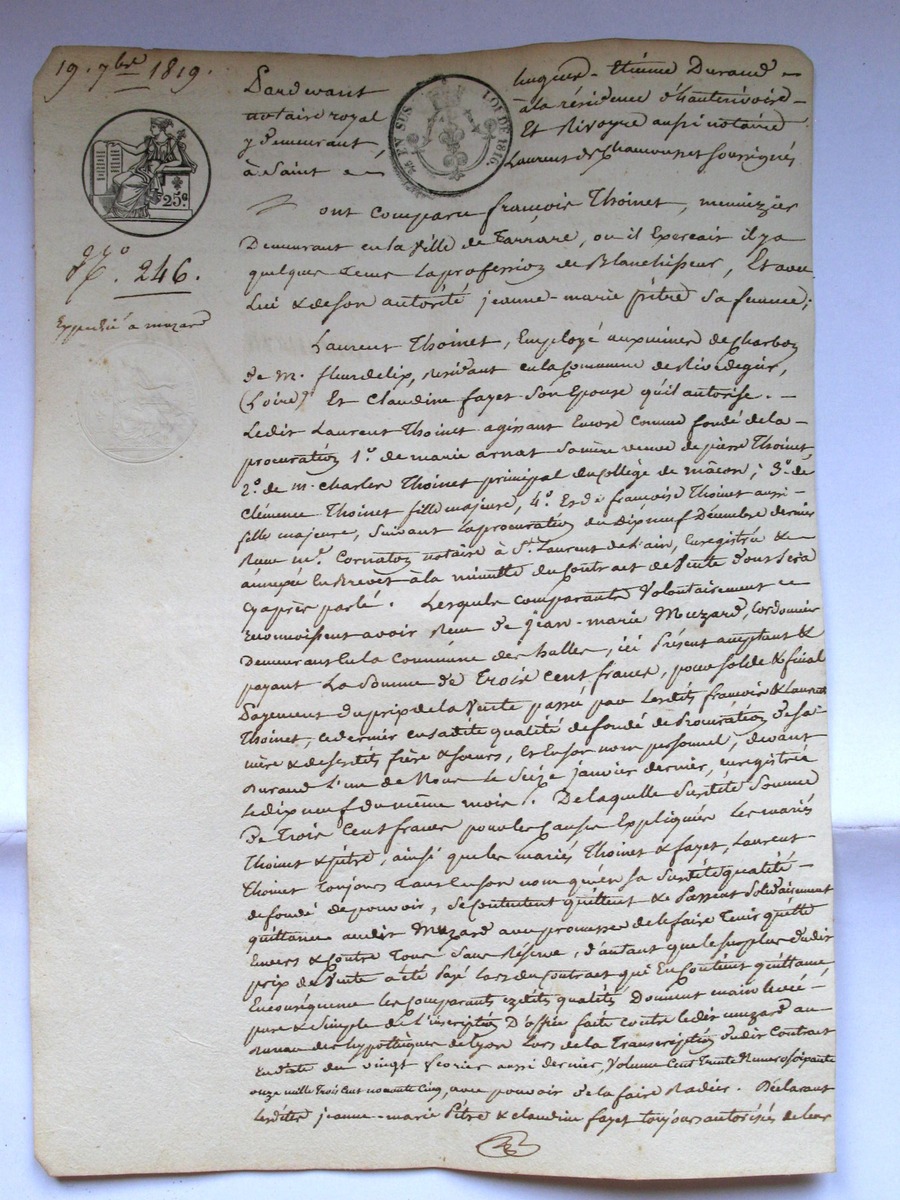 19. 7bre 1819.
25c
No. 246.
Expédié a muzard
EN SUS
LOI DE 1816.
Pardevant hugues-Etienne Durand
notaire royal à la résidence d'hauterivoire
y demeurant, Et Rivoyre aussi notaire
à Saint Laurent de Chamousset soussignés
ont comparu françois Thoinet, menuizier
Demeurant en la Ville de Tarrare, ou il Exercait il y a
quelques tems la profession de Blanchisseur, Et avec
Lui & de son autorité jeanne-marie pître sa femme;
Laurent Thoinet, Employé aux mines de Charbon
de m. fleurdelix, résidant en la Commune de Rivedegier,
(Loire) Et Claudine fayet Son Epouse qu'il autorise. —
Ledit Laurent Thoinet agissant Encore Comme fondé de la
procuration 1o. de marie arnat sa mère veuve de pierre Thoinet,
2o. de m. Charles Thoinet principal du Collège de mâcon; 3o. de
Clémence Thoinet fille majeure, 4o. Et de françoise Thoinet aussi
fille majeure, Suivant la procuration du dix neuf Décembre dernier
Reçue me. Cornaton notaire à St. Laurent de l'ain, Enregistrée &
annexée En Brevet à la minutte du Contract de Vente dont Sera
Cy après parlé. Lesquels comparants Volontairement
reconnoissent avoir Reçu de Jean-marie Muzard, Cordonnier
Demeurant En la Commune des halles, ici Présent acceptant &
payant La Somme de Trois Cent francs, pour solde & final
Payement du prix de la Vente passé par Lesdits françois & Laurent
Thoinet, ce dernier en sadite qualité de fondé de Procuration de sa
mère & de sesdits frère & soeurs, Et En son nom personnel, devant
Durand L'un de Nous Le Seize janvier dernier, enregistrée
Le dix neuf du même mois. De laquelle Susdite Somme
De Trois Cent francs pour les Causes Expliquées Les mariés
Thoinet & pître, ainsi que les mariés Thoinet & fayet, Laurent
Thoinet Toujours Tant En son nom qu'en sa Susdite qualité
de fondé de pouvoir, Se Contentent quittent & Passent Solidairement
quittance audit Muzard avec promesse de le faire Tenir quitte
Envers & Contre Tous Sans Réserve, d'autant que le surplus dudit
prix de Vente a été Payé Lors du Contract qui En Contient quittance
En Conséquence les Comparants Donnent main levée
pure & Simple de l'inscription D'office faite Contre ledit muzard au
Bureau des hypothèques de Lyon Lors de la Transcription dudit Contract
En date du vingt fevrier aussi dernier, Volume Cent Trente Numero Soixante
onze mille Trois Cent nonante Cinq, avec pouvoir de la faire Radier. Déclarant
Lesdites jeanne-marie Pître & Claudine fayet toujours autorisées de leur